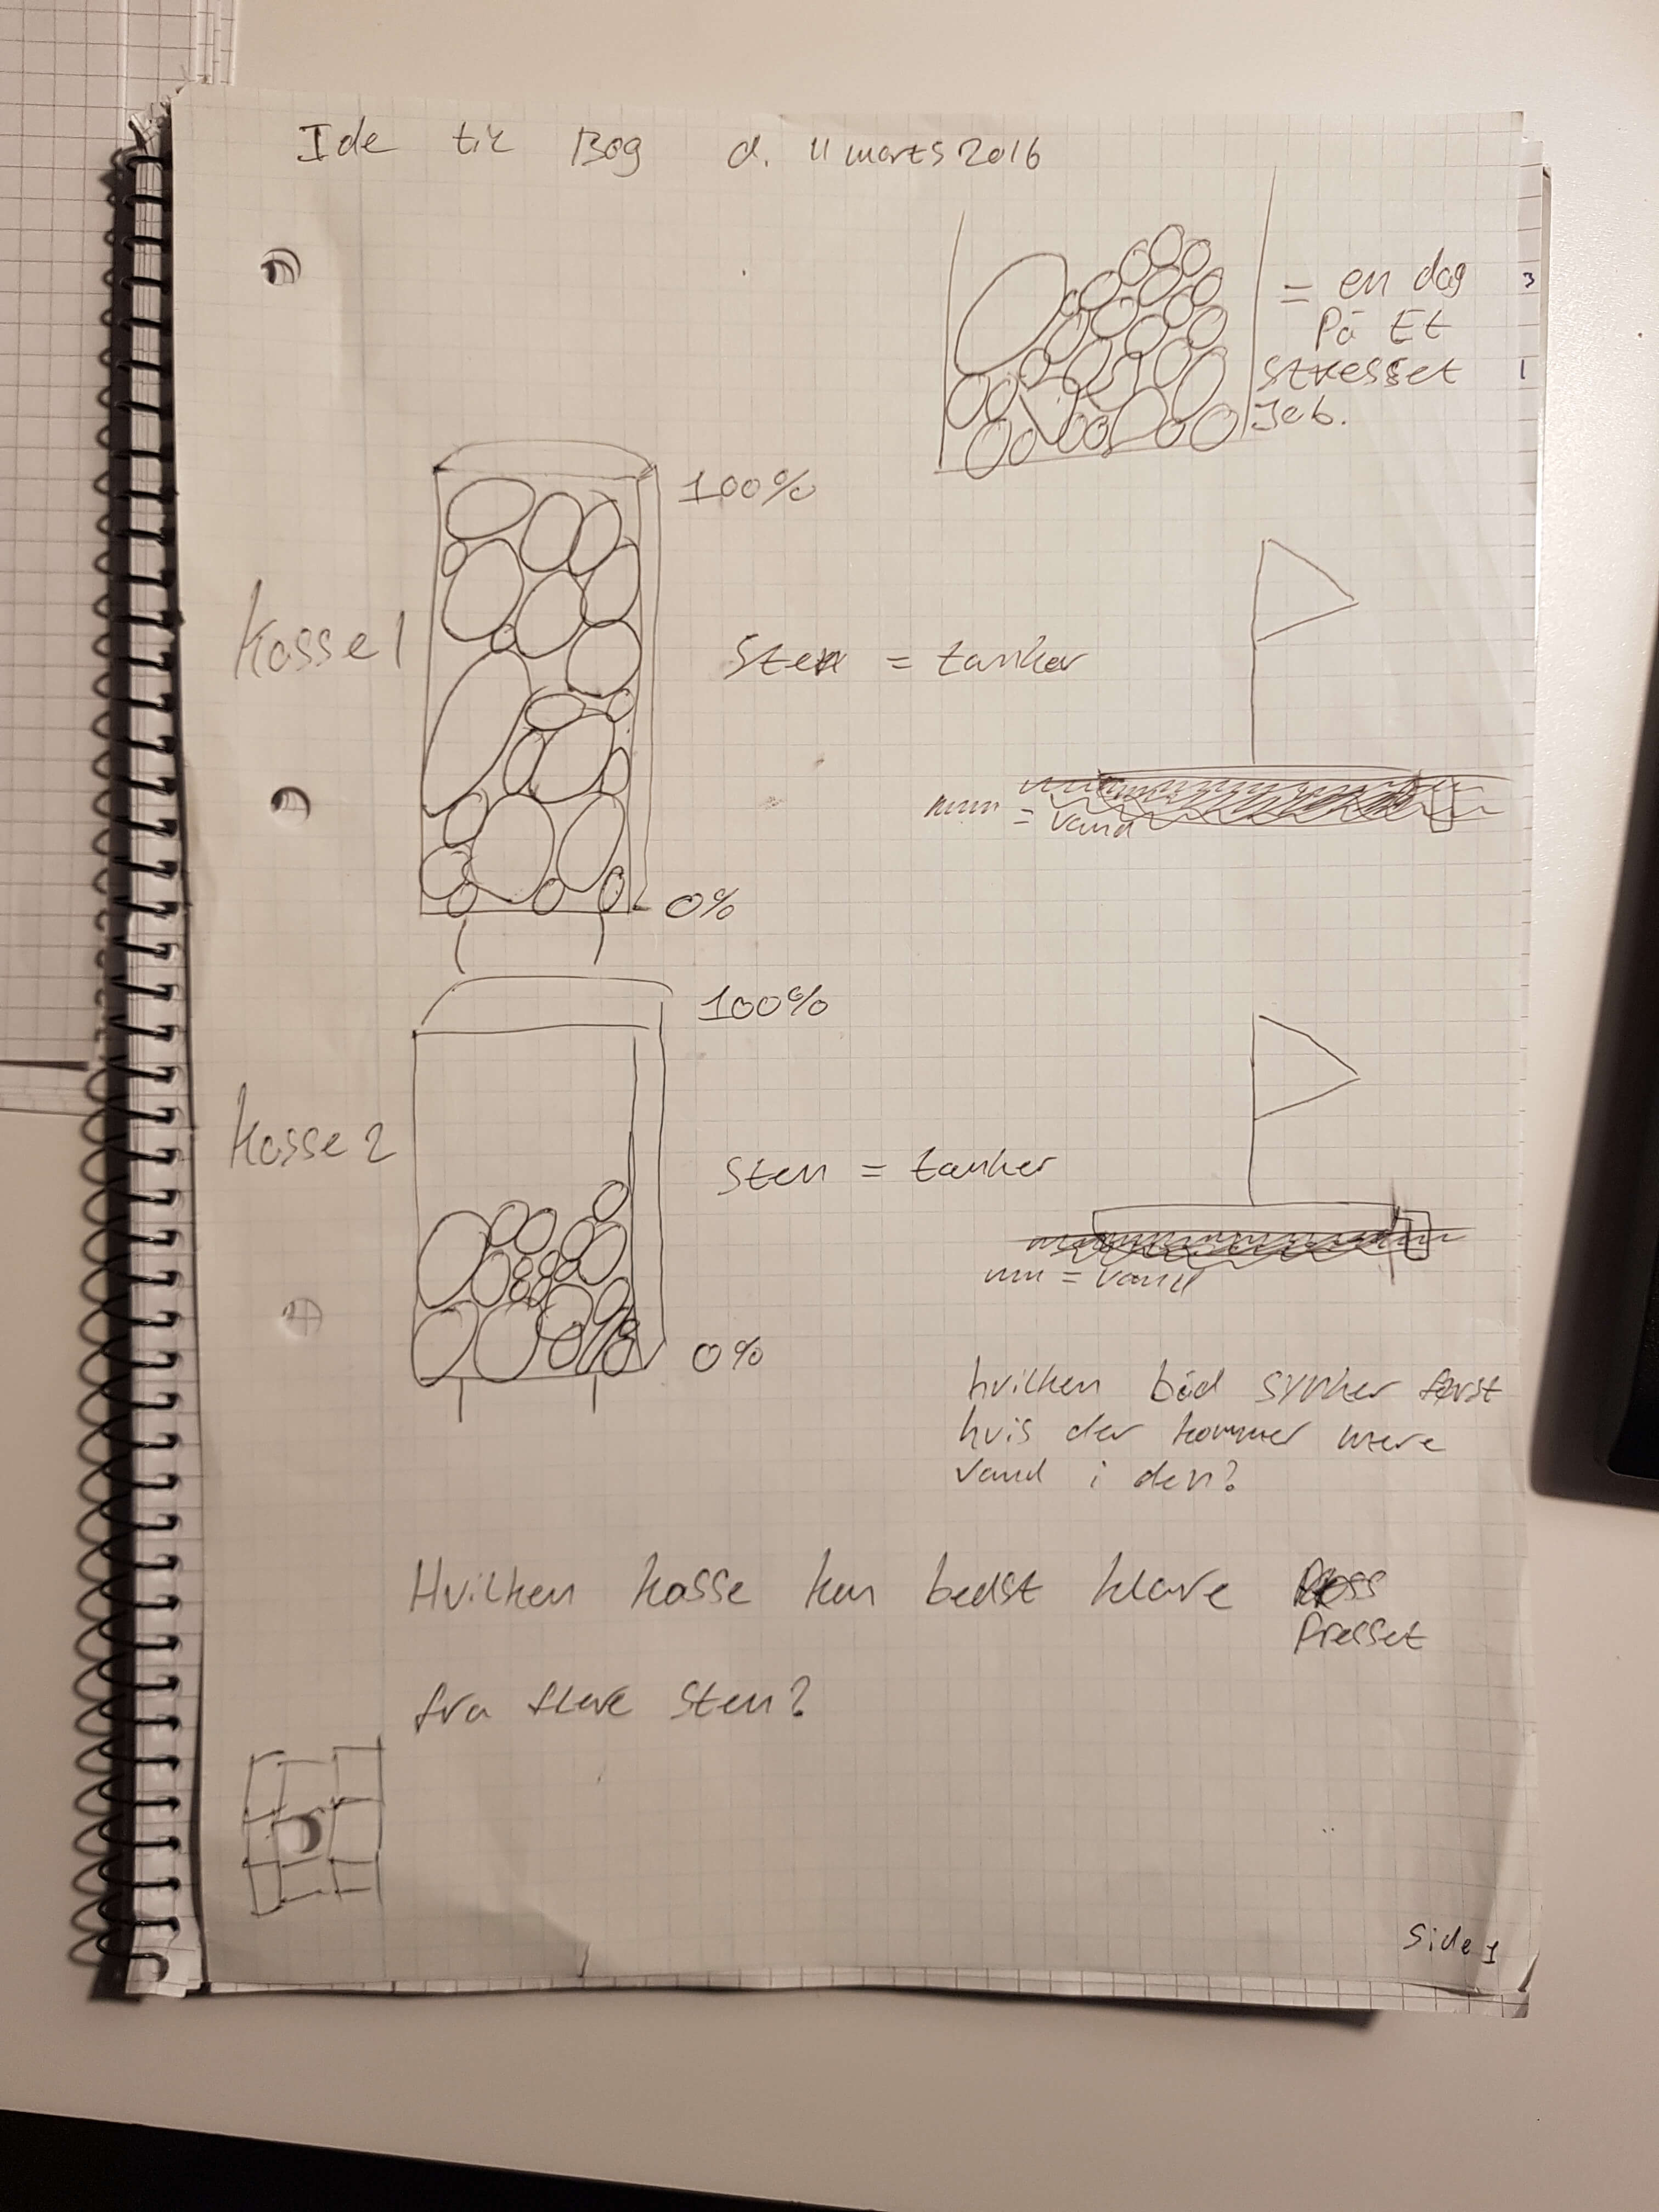 Ide til Bog d. 11 marts 2016
= en dag
På Et
stresset
Job.
3
1
100%
Kasse 1
Sten = tanker
= vand
0%
100%
Kasse 2
Sten = tanker
= vand
0%
hvilken båd synker først
hvis der kommer mere
vand i den?
Hvilken kasse kan bedst klare
Presset
fra flere sten?
Side 1